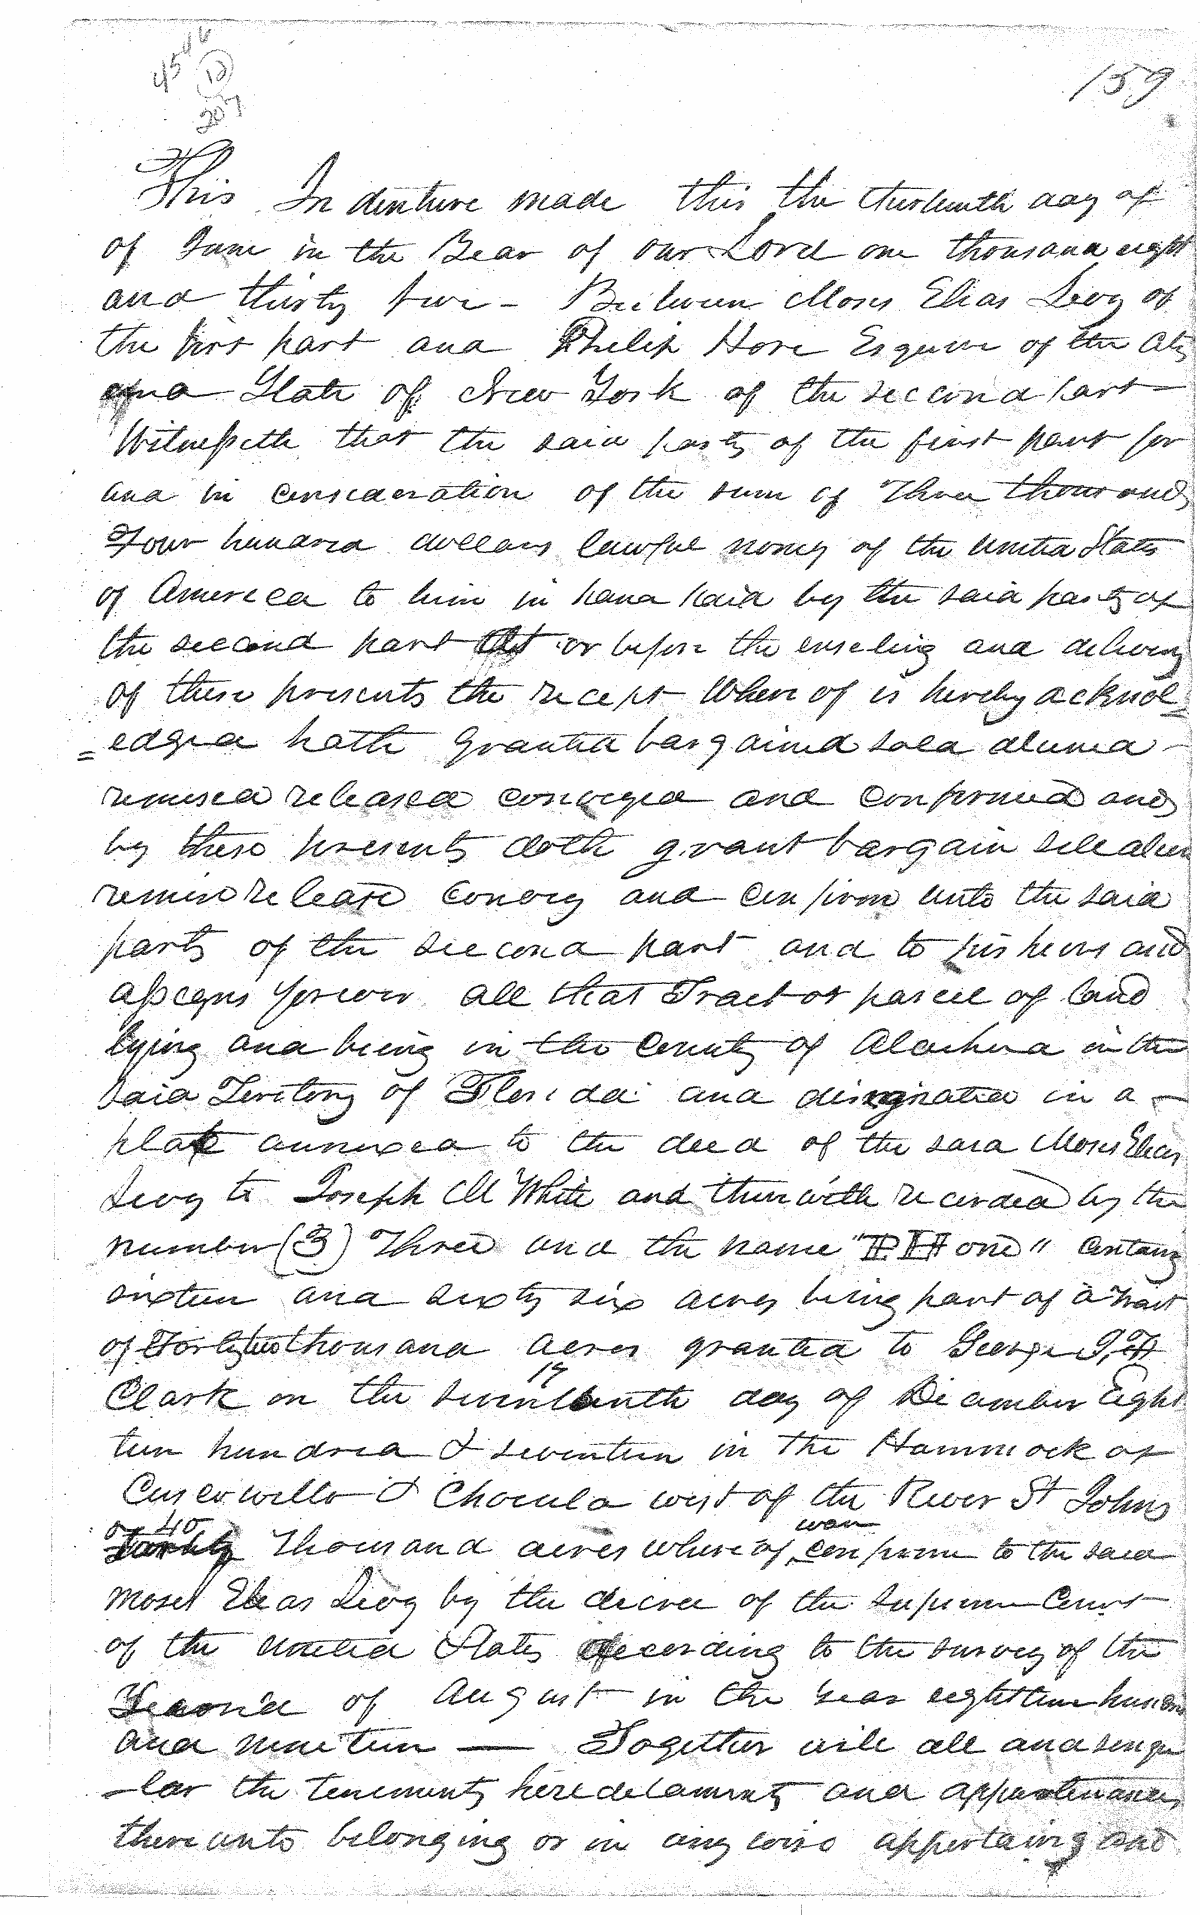 45 46
(12)
207
159
This Indenture made this the thirteenth day of
of June in the Year of our Lord one thousand eight
and thirty five - Between Moses Elias Levy of
the first part and Philip Hone Esquire of the City
and State of New York of the second part
Witnesseth that the said party of the first part for
and in consideration of the sum of Three thousand
Four hundred dollars lawful money of the United States
of America to him in hand paid by the said party of
the second part at or before the ensealing and delivery
of these presents the recept Where of is hereby acknol
=edged hath granted bargained sold aliened
remised released conveyed and confirmed and
by these presents doth grant bargain sell alien
remise release convey and confirm unto the said
party of the second part and to his heirs and
assigns forever all that Tract or parcel of land
lying and being in the County of Alachua in the
said Teritory of Florida and designated in a
plat annexed to the deed of the said Moses Elias
Levy to Joseph M White and therewith recorded by the
number (3) Three and the name "PH one" containg
sixteen and sixty six acres being part of a tract
of thousand acres granted to George J. F.
17
Clark on the seventeenth day of December Eight
teen hundred & seventeen in the Hammock of
Cuscowillo & Chocula west of the River St Johns
or 40 was
Thousand acres where of confirme to the said
Moses Elias Levy by the decree of the Supreme Court
of the United States according to the survey of the
Second of August in the Year eighteen hundred
and nineteen — Together with all and singu
-lar the tenements heredetaments and appurtenances
there unto belonging or in any wise appertaing and